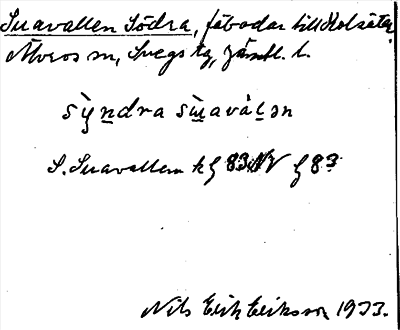 Snavallen Södra, fäbodar till Kolsätter
Älvros sn, Svegs tg, Jämtl. l.
sỳndra sǜavàlən
S. Snavallen k ξ 83 NV ξ 83
Nils Erik Eriksson 1933.